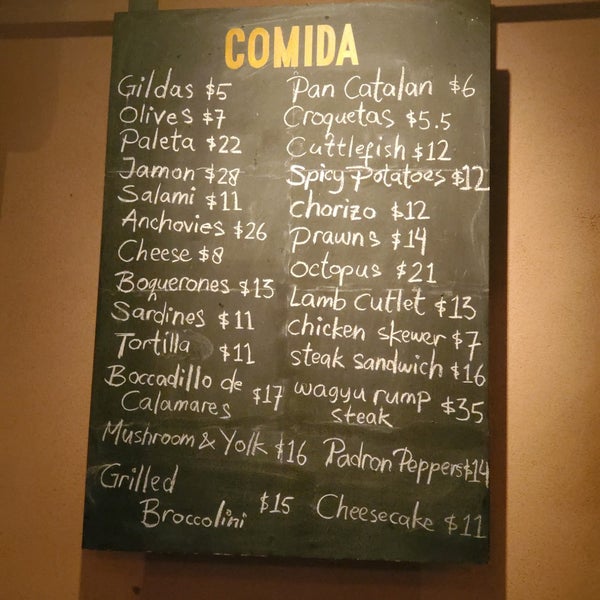 COMIDA
Gildas $5
Olives $7
Paleta $22
Jamon $28
Salami $11
Anchovies $26
Cheese $8
Boquerones $13
Sardines $11
Tortilla $11
Boccadillo de
Calamares $17
Mushroom & Yolk $16
Grilled
Broccolini $15
Pan Catalan $6
Croquetas $5.5
Cuttlefish $12
Spicy Potatoes $12
Chorizo $12
Prawns $14
Octopus $21
Lamb Cutlet $13
chicken skewer $7
steak sandwich $16
wagyu rump
steak $35
Padron Peppers $14
Cheesecake $11